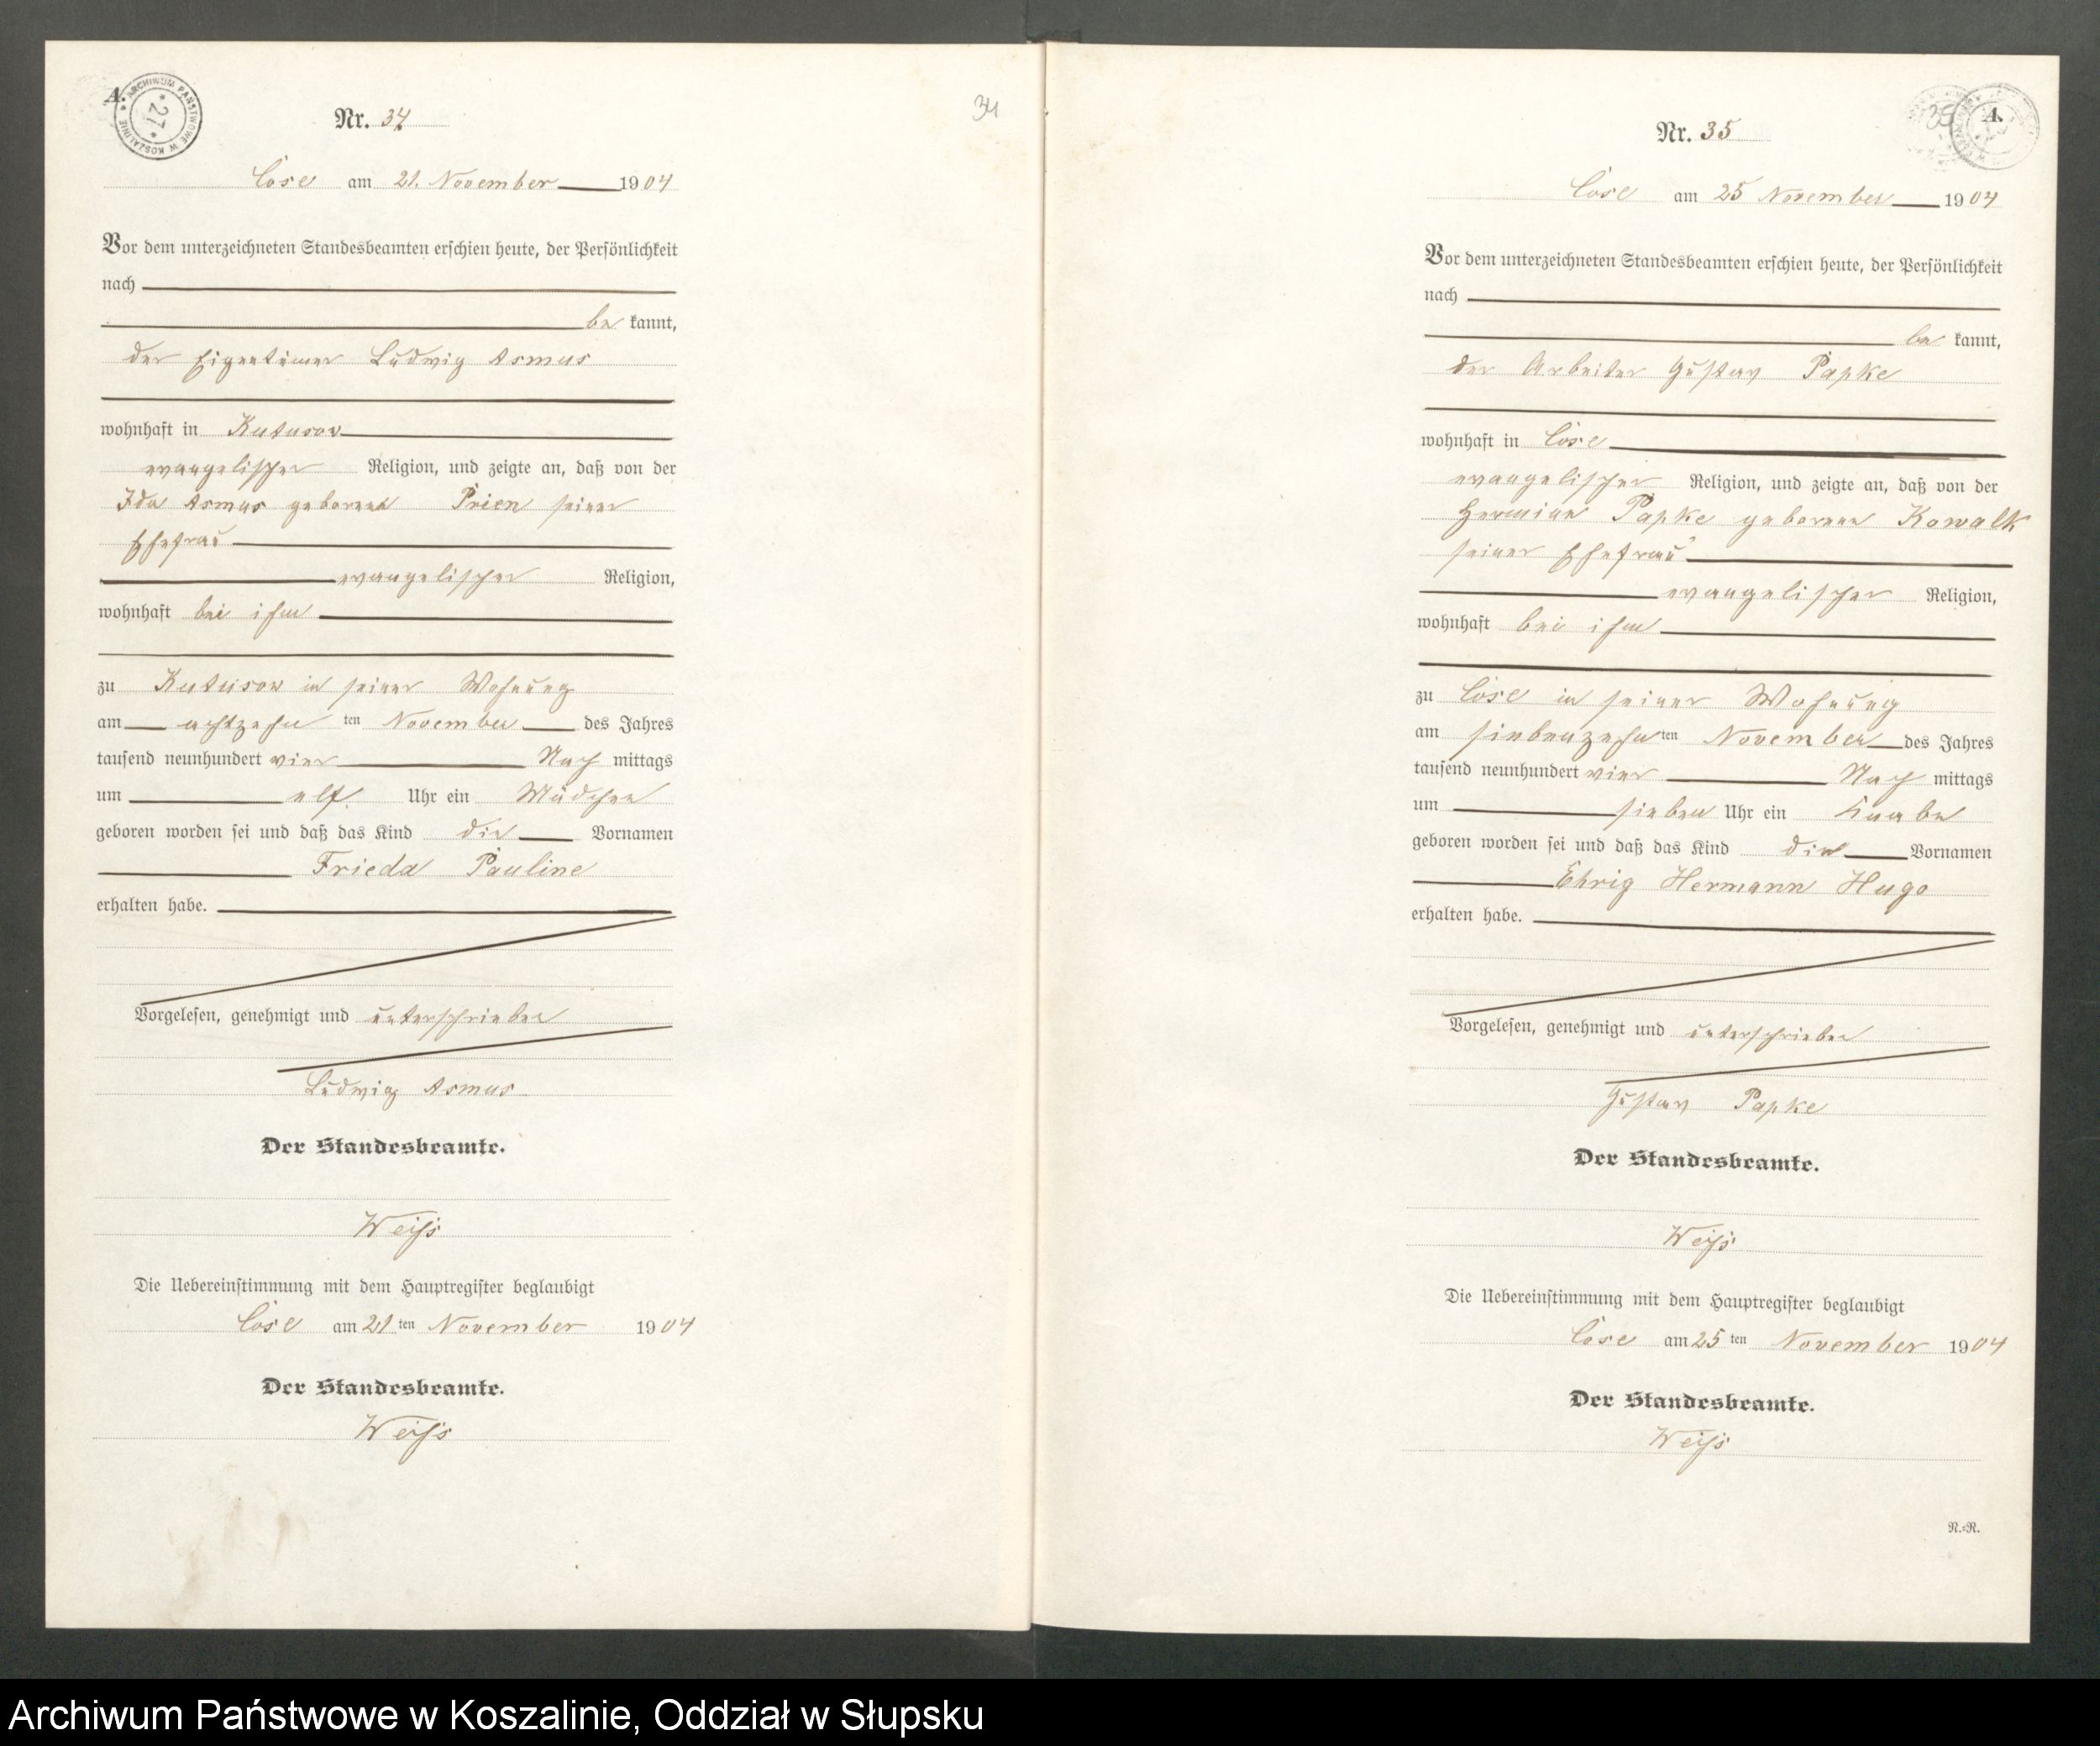 A.
ARCHIWUM PAŃSTWOWE W KOSZALINIE
* 27 *
Nr. 34
Cose am 21. November 1904
Vor dem unterzeichneten Standesbeamten erschien heute, der Persönlichkeit
nach
be kannt,
der Eigentümer Ludwig Asmus
wohnhaft in Kutusow
evangelischer Religion, und zeigte an, daß von der
Ida Asmus geborene Prien seiner
Ehefrau
evangelischer Religion,
wohnhaft bei ihm
zu Kutusow in seiner Wohnung
am achtzehn ten November des Jahres
tausend neunhundert vier Nach mittags
um elf Uhr ein Mädchen
geboren worden sei und daß das Kind die Vornamen
Frieda Pauline
erhalten habe.
Vorgelesen, genehmigt und unterschrieben
Ludwig Asmus
Der Standesbeamte.
Weiss
Die Uebereinstimmung mit dem Hauptregister beglaubigt
Cose am 21 ten November 1904
Der Standesbeamte.
Weiss
34
35
A.
Nr. 35
Cose am 25 November 1904
Vor dem unterzeichneten Standesbeamten erschien heute, der Persönlichkeit
nach
be kannt,
der Arbeiter Gustav Papke
wohnhaft in Cose
evangelischer Religion, und zeigte an, daß von der
Hermine Papke geborene Kowalk
seiner Ehefrau
evangelischer Religion,
wohnhaft bei ihm
zu Cose in seiner Wohnung
am siebenzehn ten November des Jahres
tausend neunhundert vier Nach mittags
um sieben Uhr ein Knabe
geboren worden sei und daß das Kind die Vornamen
Ehrig Hermann Hugo
erhalten habe.
Vorgelesen, genehmigt und unterschrieben
Gustav Papke
Der Standesbeamte.
Weiss
Die Uebereinstimmung mit dem Hauptregister beglaubigt
Cose am 25 ten November 1904
Der Standesbeamte.
Weiss
N.=N.
Archiwum Państwowe w Koszalinie, Oddział w Słupsku